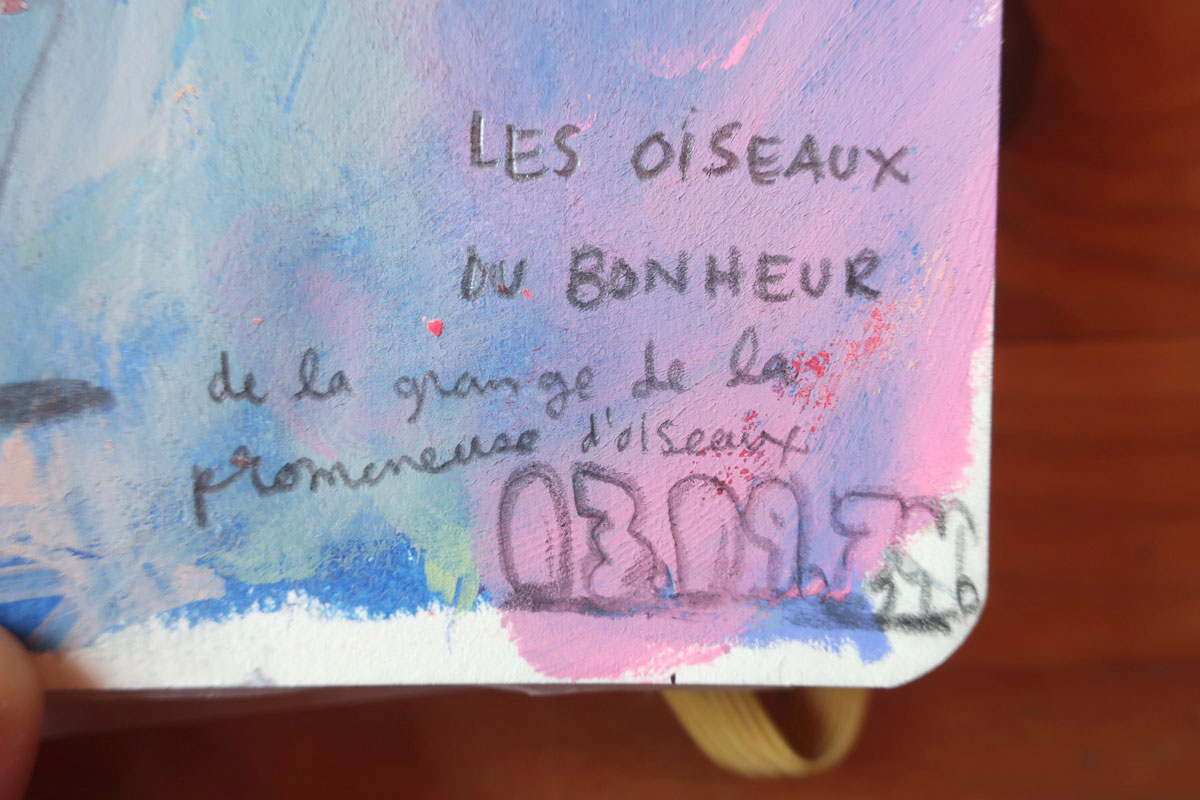 LES OISEAUX
DU BONHEUR
de la grange de la
promeneuse d'oiseaux
03.09.